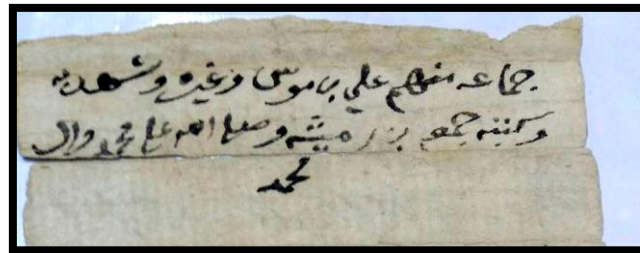 جماعه منهم علي بن موسى وغيره وشهد به
وكتبه جمعه بن رميثه وصلى الله على محمد وال
محمد